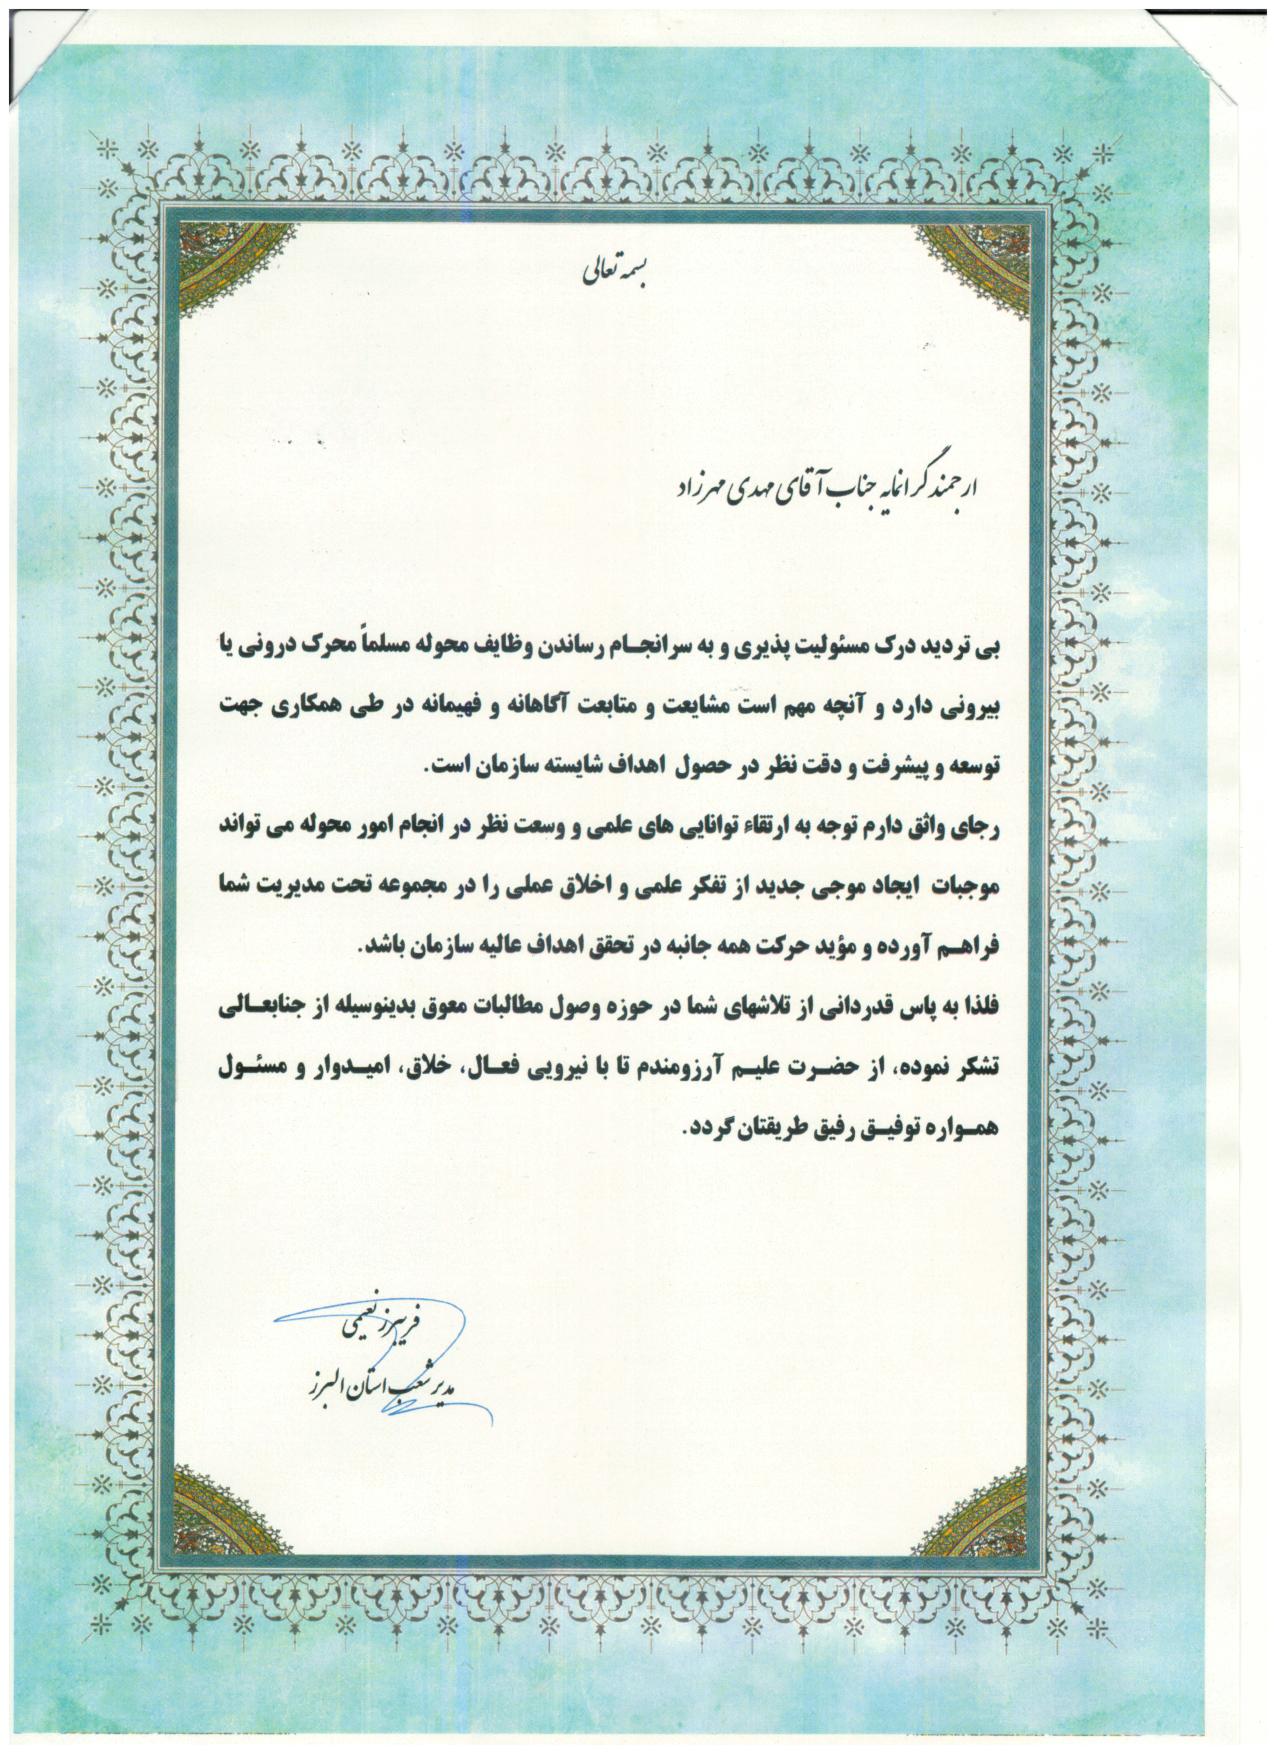 بسمه تعالی
ارجمند گرانمایه جناب آقای مهدی مهرزاد
بی تردید درک مسئولیت پذیری و به سرانجـام رساندن وظایف محوله مسلماً محرک درونی یا
بیرونی دارد و آنچه مهم است مشایعت و متابعت آگاهانه و فهیمانه در طی همکاری جهت
توسعه و پیشرفت و دقت نظر در حصول اهداف شایسته سازمان است.
رجای واثق دارم توجه به ارتقاء توانایی های علمی و وسعت نظر در انجام امور محوله می تواند
موجبات ایجاد موجی جدید از تفکر علمی و اخلاق عملی را در مجموعه تحت مدیریت شما
فراهـم آورده و مؤید حرکت همه جانبه در تحقق اهداف عالیه سازمان باشد.
فلذا به پاس قدردانی از تلاشهای شما در حوزه وصول مطالبات معوق بدینوسیله از جنابعـالی
تشکر نموده، از حضـرت علیـم آرزومندم تا با نیرویی فعـال، خلاق، امیـدوار و مسئـول
همـواره توفیـق رفیق طریقتان گردد.
فریبرز نعیمی
مدیر شعب استان البرز